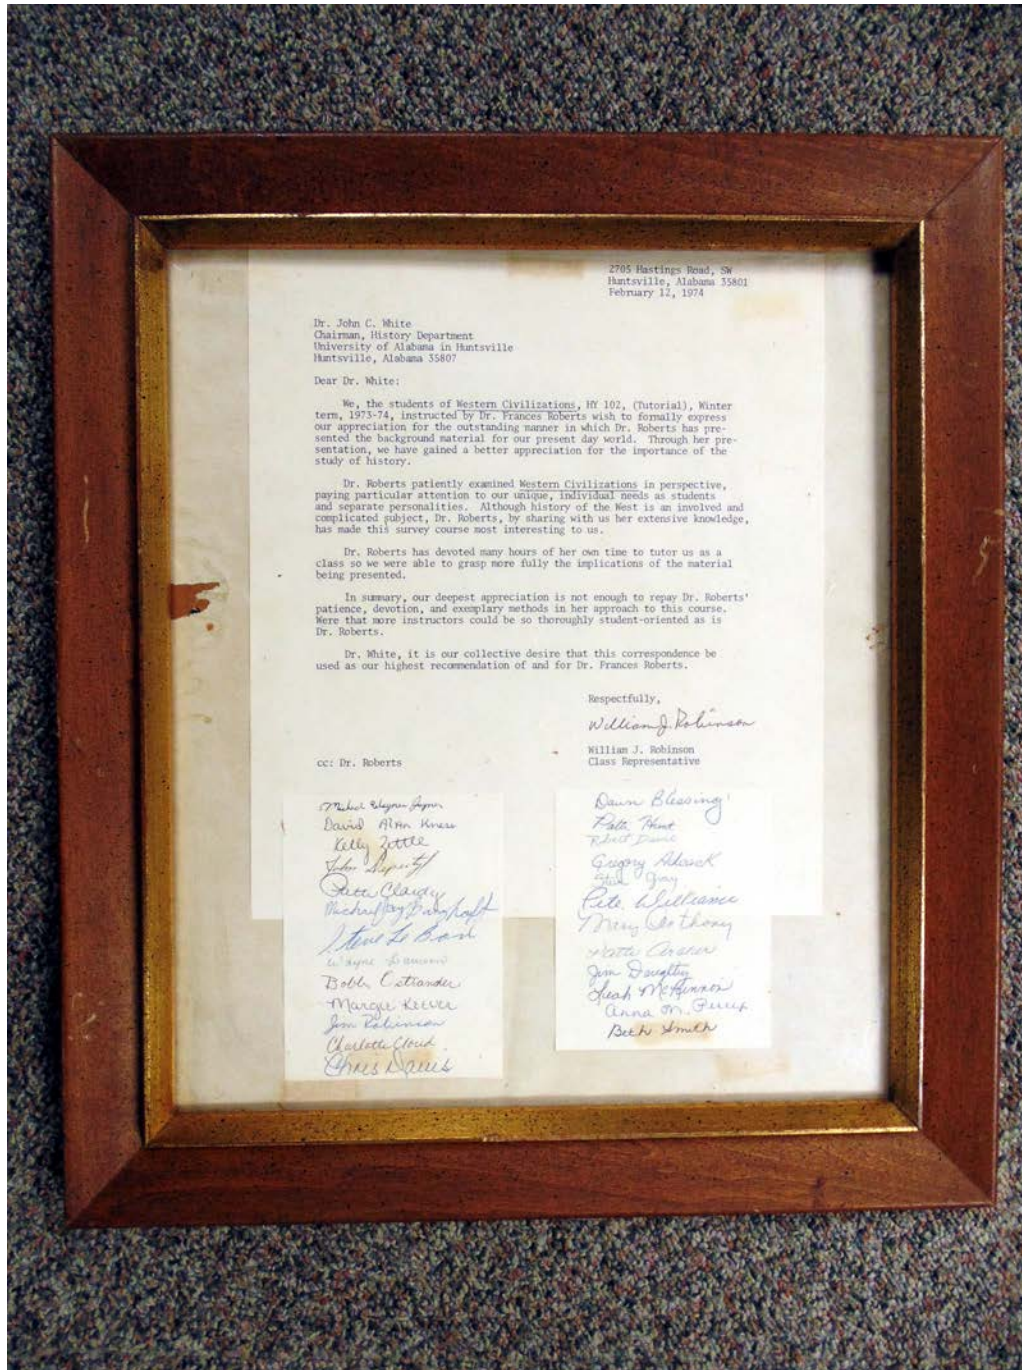 2705 Hastings Road, SW
Huntsville, Alabama 35801
February 12, 1974
Dr. John C. White
Chairman, History Department
University of Alabama in Huntsville
Huntsville, Alabama 35807
Dear Dr. White:
We, the students of Western Civilizations, HY 102, (Tutorial), Winter
term, 1973-74, instructed by Dr. Frances Roberts wish to formally express
our appreciation for the outstanding manner in which Dr. Roberts has pre-
sented the background material for our present day world. Through her pre-
sentation, we have gained a better appreciation for the importance of the
study of history.
Dr. Roberts patiently examined Western Civilizations in perspective,
paying particular attention to our unique, individual needs as students
and separate personalities. Although history of the West is an involved and
complicated subject, Dr. Roberts, by sharing with us her extensive knowledge,
has made this survey course most interesting to us.
Dr. Roberts has devoted many hours of her own time to tutor us as a
class so we were able to grasp more fully the implications of the material
being presented.
In summary, our deepest appreciation is not enough to repay Dr. Roberts'
patience, devotion, and exemplary methods in her approach to this course.
Were that more instructors could be so thoroughly student-oriented as is
Dr. Roberts.
Dr. White, it is our collective desire that this correspondence be
used as our highest recommendation of and for Dr. Frances Roberts.
Respectfully,
William J. Robinson
William J. Robinson
Class Representative
cc: Dr. Roberts
David Alan
Kelly Zettle
John
Patti
Michael Jay
Steve Le
Wayne
Ostrander
Margie Keever
Jim Robinson
Charlotte Cloud
Chris Davis
Dawn Blessing
Patti Hunt
Robert
Gregory Adcock
Gray
Pete Williams
Mary Anthony
Patti
Jim
Leah McKinnon
Anna M.
Beth Smith